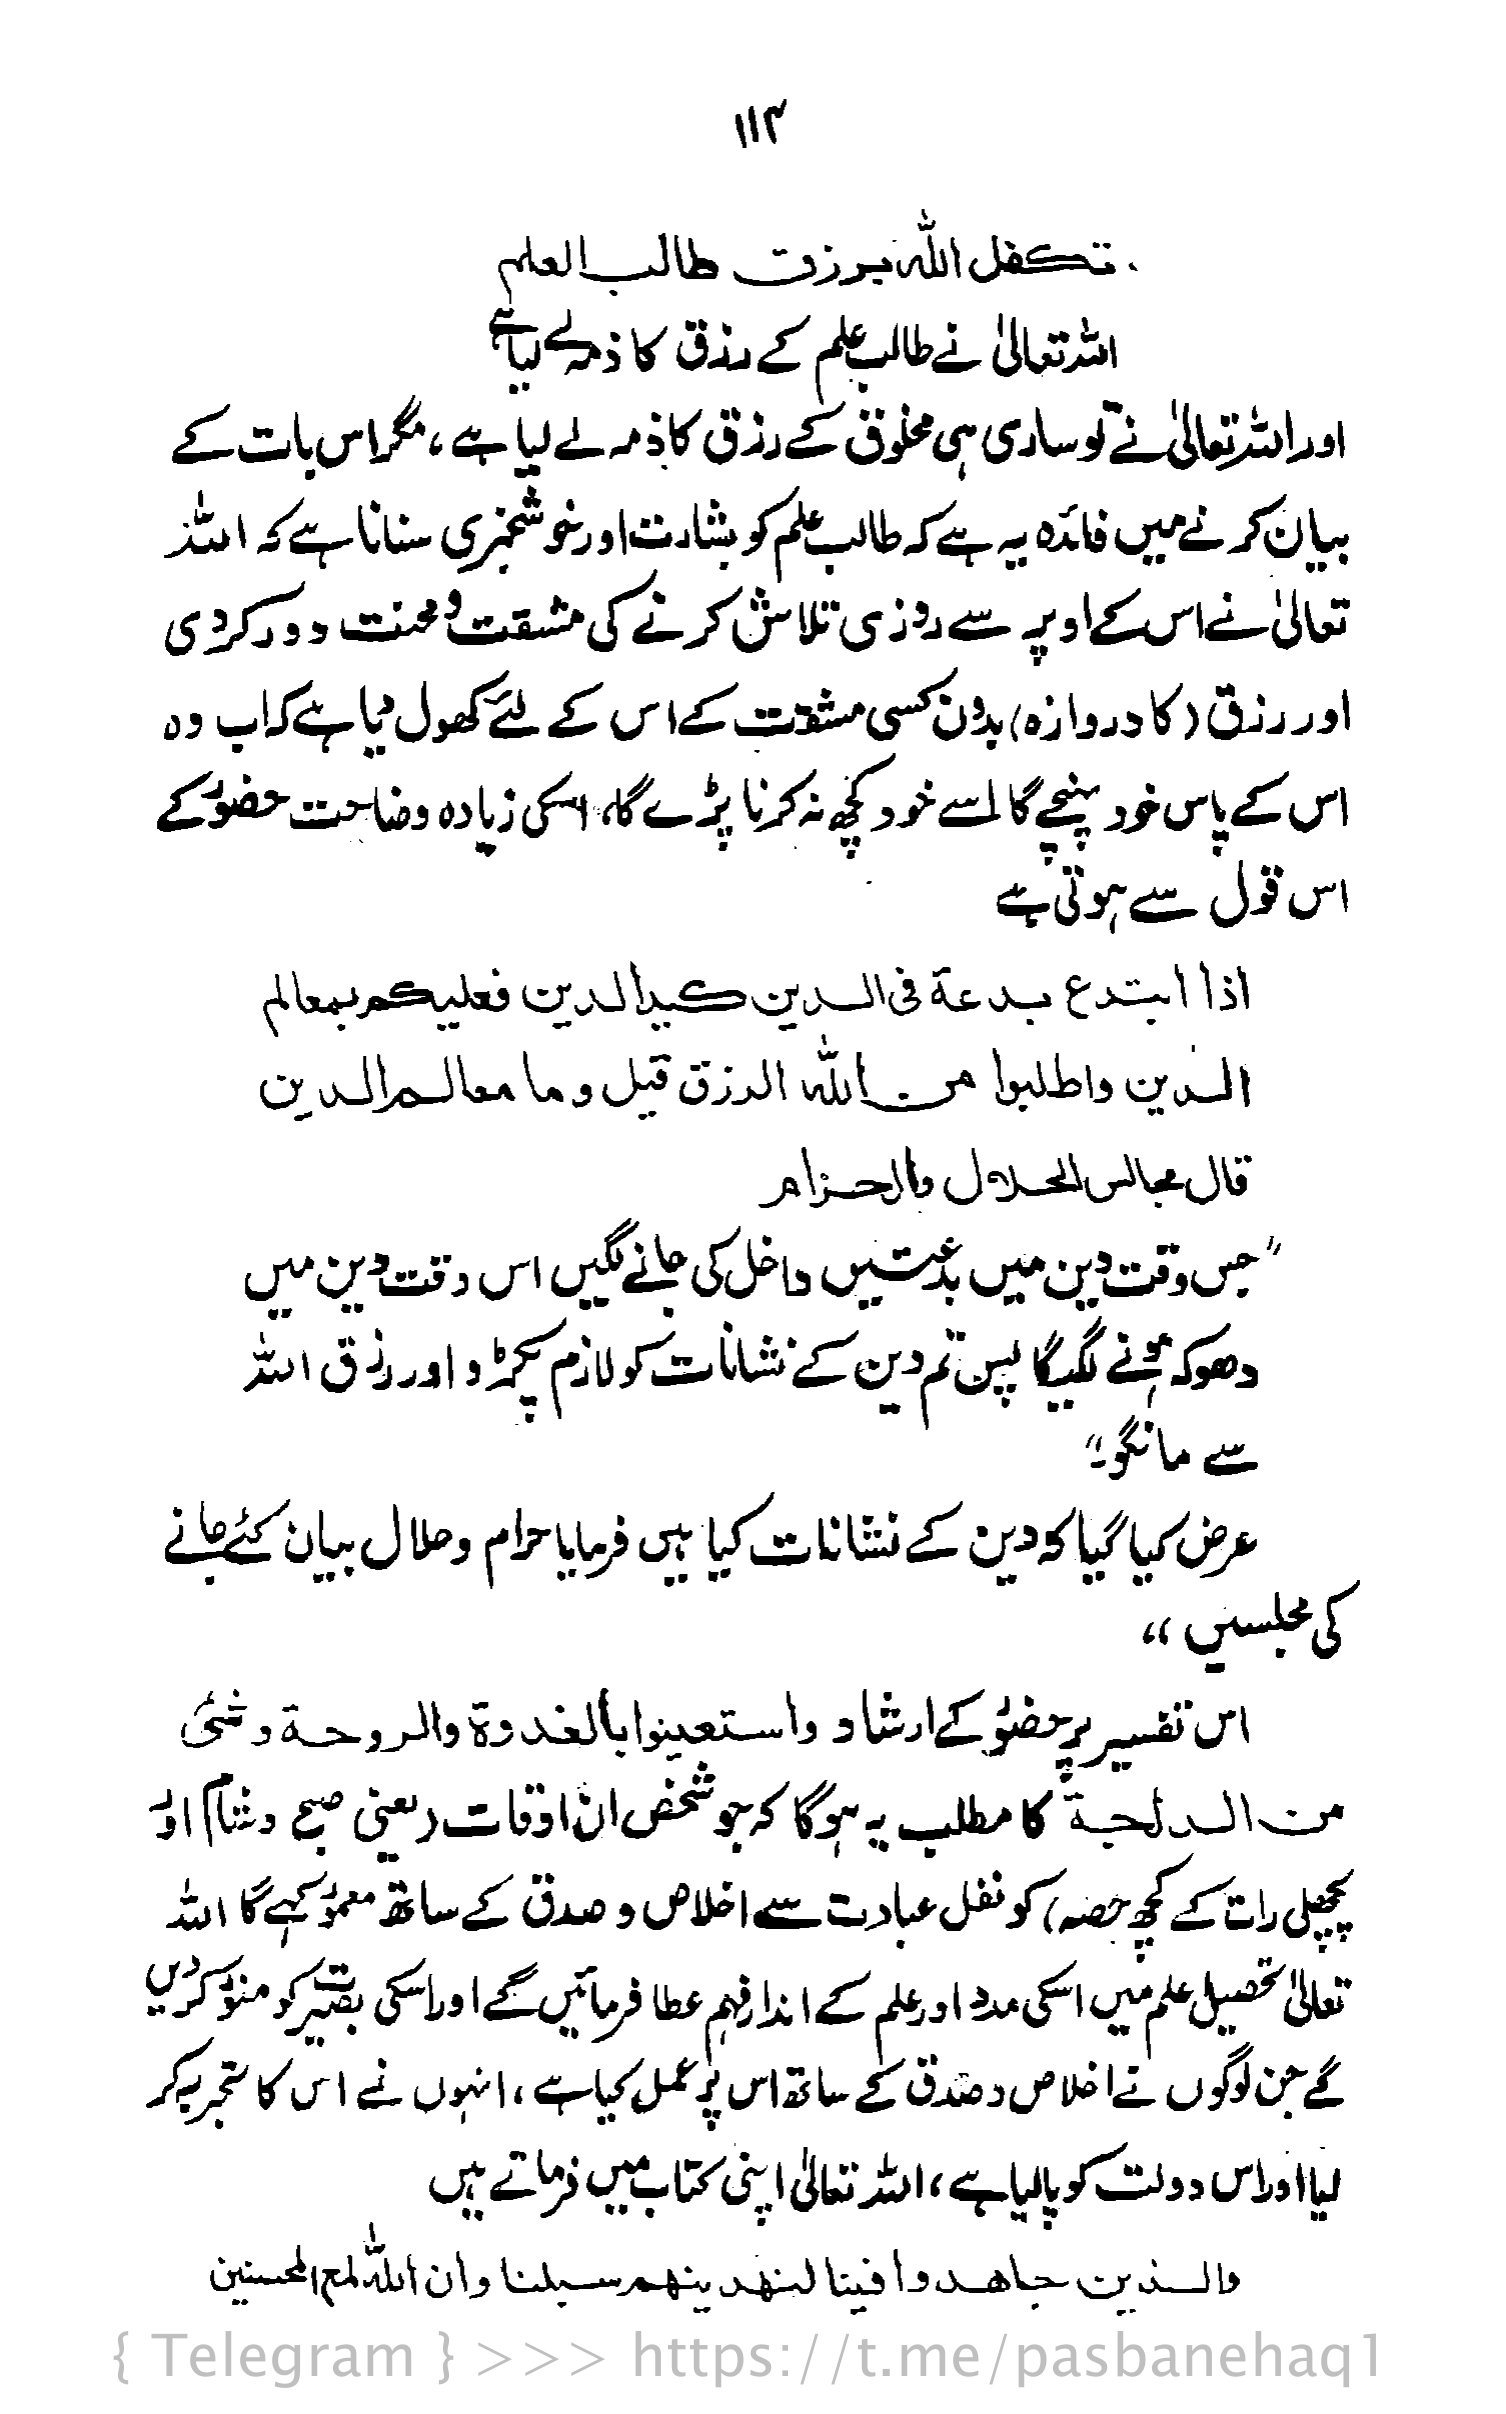 ۱۱۴
تکفل اللہ برزق طالب العلم
اللہ تعالیٰ نے طالب علم کے رزق کا ذمہ لے لیا ہے
اور اللہ تعالیٰ نے تو ساری ہی مخلوق کے رزق کا ذمہ لے لیا ہے، مگر اس بات کے
بیان کرنے میں فائدہ یہ ہے کہ طالب علم کو بشارت اور خوشخبری سنانا ہے کہ اللہ
تعالیٰ نے اس کے اوپر سے روزی تلاش کرنے کی مشقت و محنت دور کردی
اور رزق (کا دروازہ) بدون کسی مشقت کے اس کے لئے کھول دیا ہے کہ اب وہ
اس کے پاس خود پہنچے گا اسے خود کچھ نہ کرنا پڑے گا، اسکی زیادہ وضاحت حضورؐ کے
اس قول سے ہوتی ہے
اذا ابتدع بدعة فی الدین کید الدین فعلیکم بمعالم
الدین واطلبوا من اللہ الرزق قیل وما معالم الدین
قال مجالس الحلال والحرام
"جس وقت دین میں بدعتیں داخل کی جانے لگیں اس وقت دین میں
دھوکہ ہونے لگیگا پس تم دین کے نشانات کو لازم پکڑو اور رزق اللہ
سے مانگو۔"
عرض کیا گیا کہ دین کے نشانات کیا ہیں فرمایا حرام و حلال بیان کئے جانے
کی مجلسیں"
اس تفسیر پر حضورؐ کے ارشاد واستعینوا بالغدوة والروحة وشئ
من الدلجة کا مطلب یہ ہوگا کہ جو شخص ان اوقات (یعنی صبح و شام اور
پچھلی رات کے کچھ حصہ) کو نفل عبادت سے اخلاص و صدق کے ساتھ معمور کہے گا اللہ
تعالیٰ تحصیل علم میں اسکی مدد اور علم کے اندار فہم عطا فرمائیں گے اور اسکی بصیرت کو منور کردیں
گے جن لوگوں نے اخلاص و صدق کے ساتھ اس پر عمل کیا ہے، انہوں نے اس کا تجربہ کر
لیا اور اس دولت کو پالیا ہے، اللہ تعالیٰ اپنی کتاب میں فرماتے ہیں
والذین جاھدوا فینا لنھدینھم سبلنا وان اللہ لمع المحسنین
{ Telegram } >>> https://t.me/pasbanehaq1